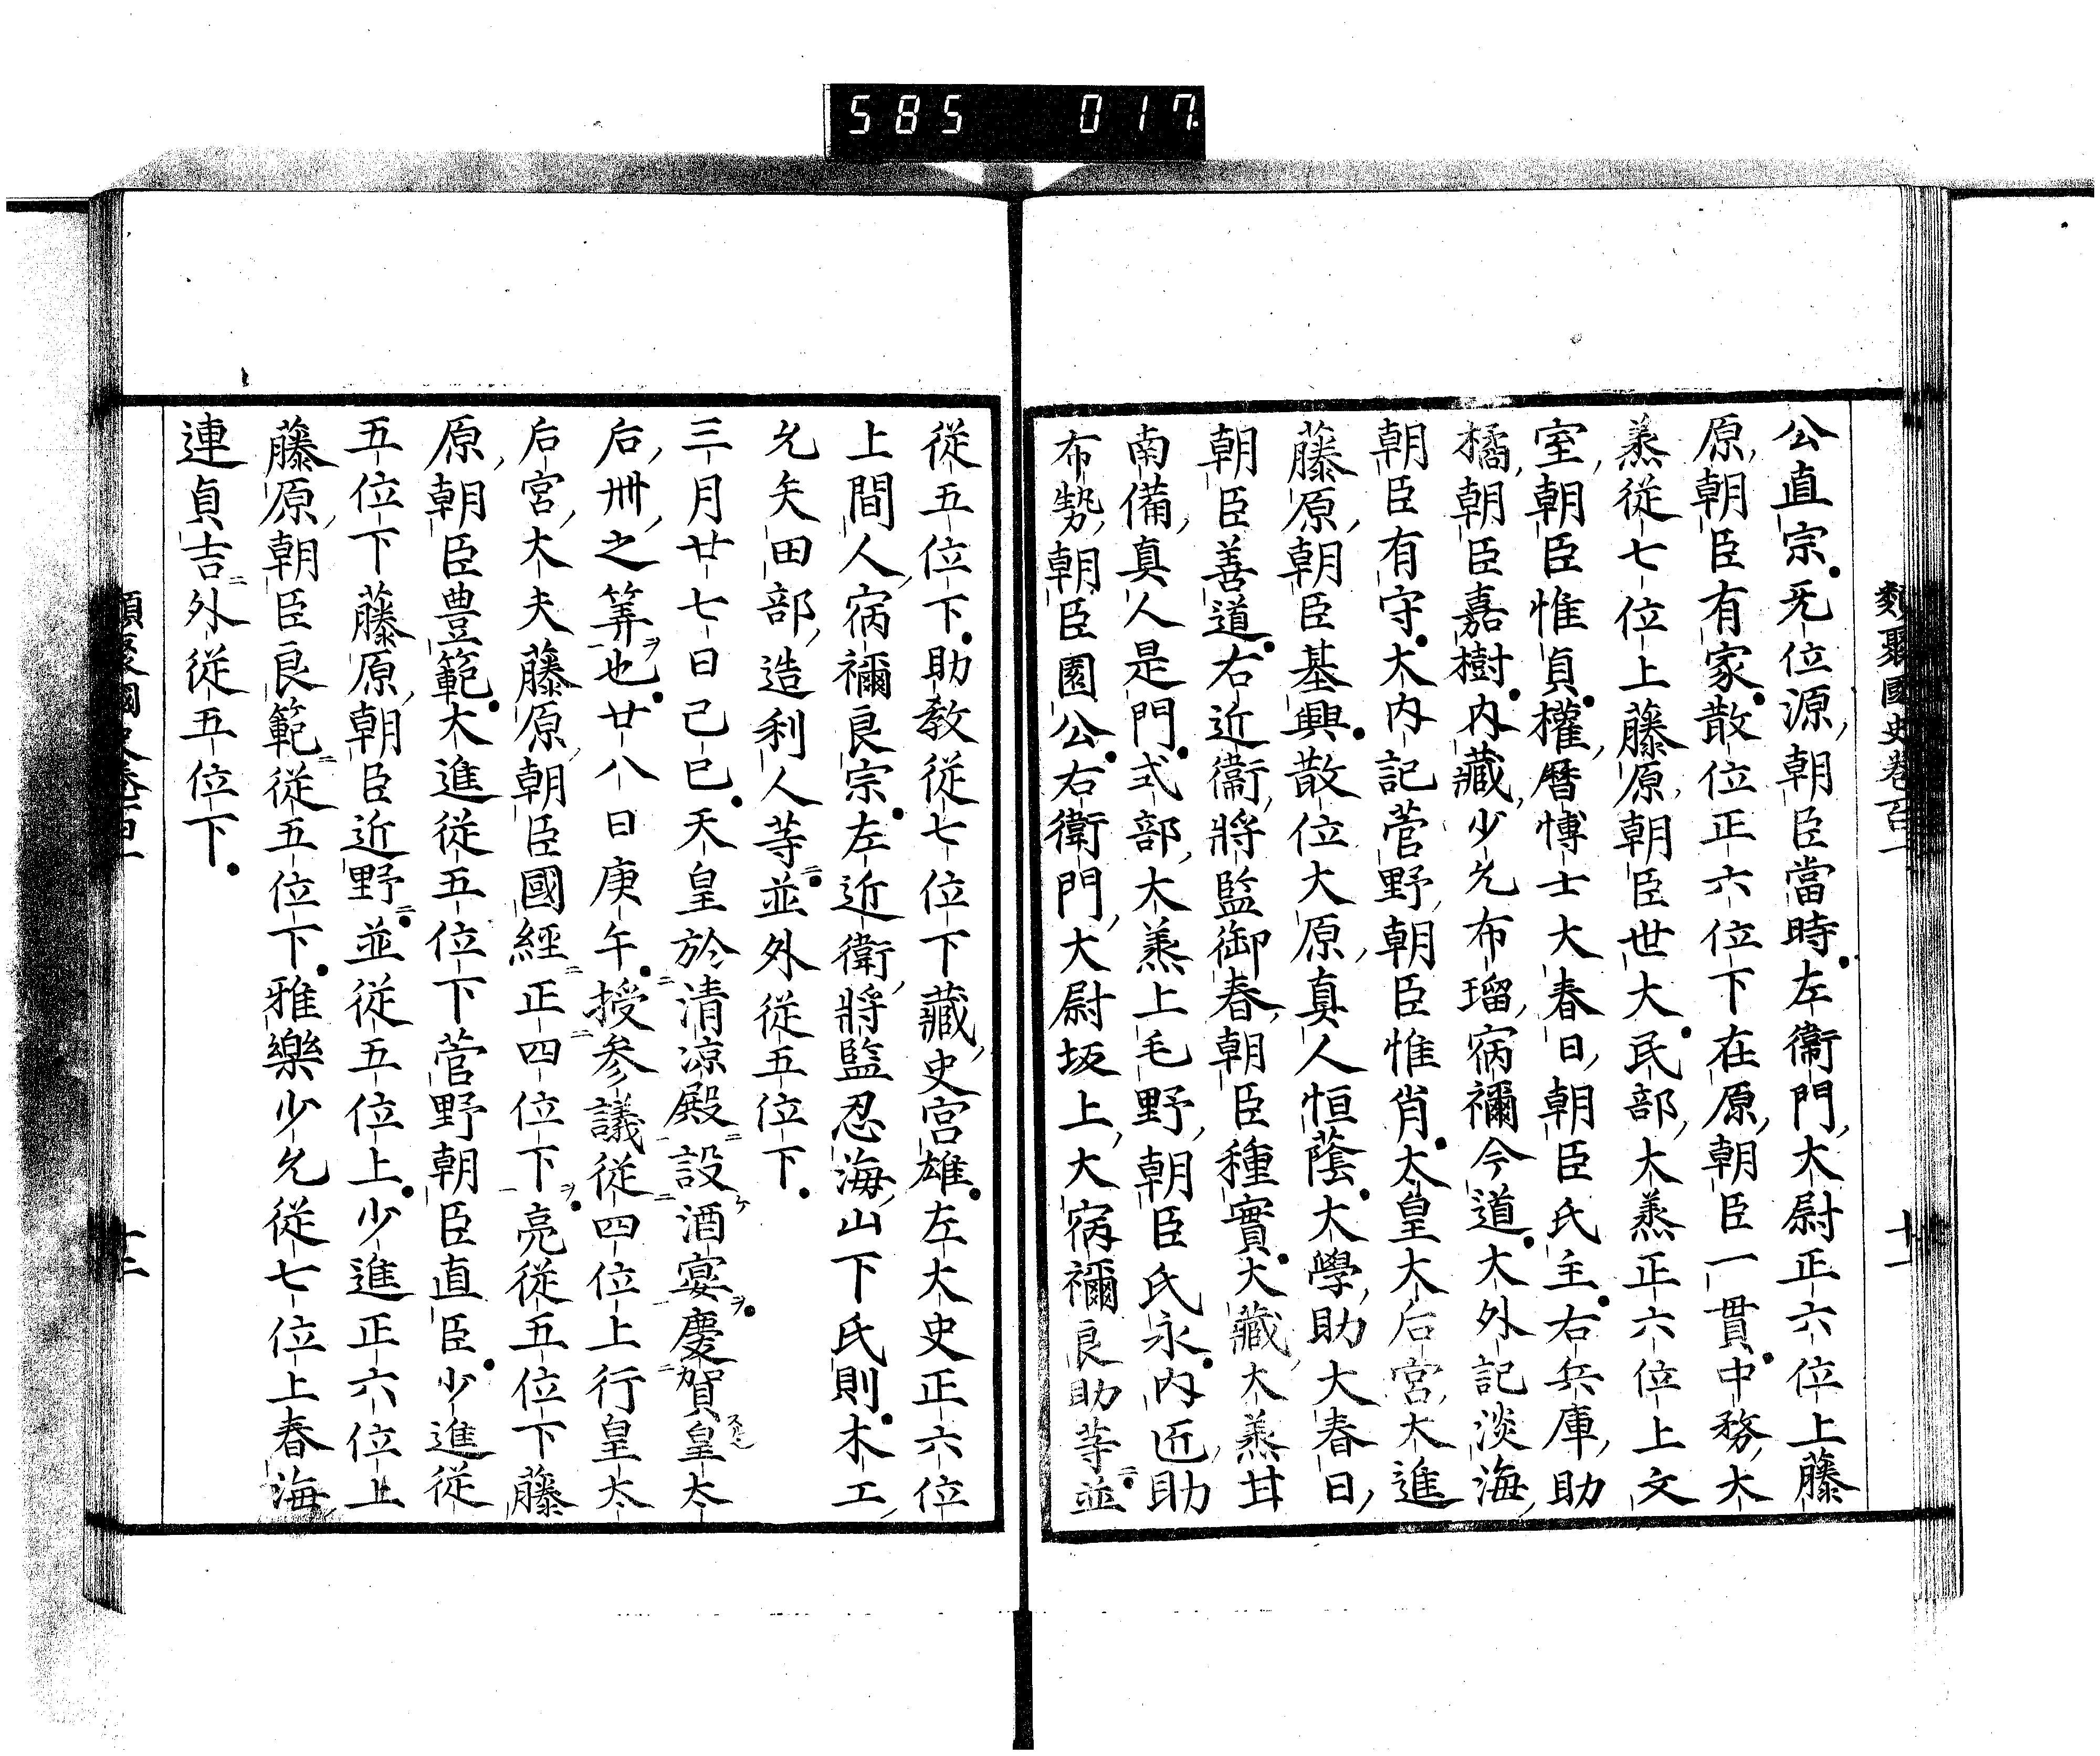 585 017
類聚國史卷百一 十一
公直宗。无位源朝臣當時。左衞門大尉正六位上藤
原朝臣有家。散位正六位下在原朝臣一貫。中務大
烝從七位上藤原朝臣世大。民部大烝正六位上文
室朝臣惟貞。權曆博士大春日朝臣氏主。右兵庫助
橘朝臣嘉樹。内藏少允布瑠宿禰今道。大外記淡海
朝臣有守。大内記菅野朝臣惟肖。太皇太后宮大進
藤原朝臣基興。散位大原真人恒蔭。大學助大春日
朝臣善道。右近衞將監御春朝臣種實。大藏大烝甘
南備真人是門。式部大烝上毛野朝臣氏永。内匠助
布勢朝臣園公。右衞門大尉坂上大宿禰良助等並
從五位下。助教從七位下藏史宮雄。左大史正六位
上間人宿禰良宗。左近衞將監忍海山下氏則。木工
允矢田部造利人等並外從五位下。
三月廿七日己巳。天皇於清凉殿設酒宴慶賀皇太
后卌之筭也。廿八日庚午。授參議從四位上行皇太
后宮大夫藤原朝臣國經正四位下。亮從五位下藤
原朝臣豊範。大進從五位下菅野朝臣直臣。少進從
五位下藤原朝臣近野並從五位上。少進正六位上
藤原朝臣良範從五位下。雅樂少允從七位上春海
連貞吉外從五位下。
類聚國史卷百一 十二